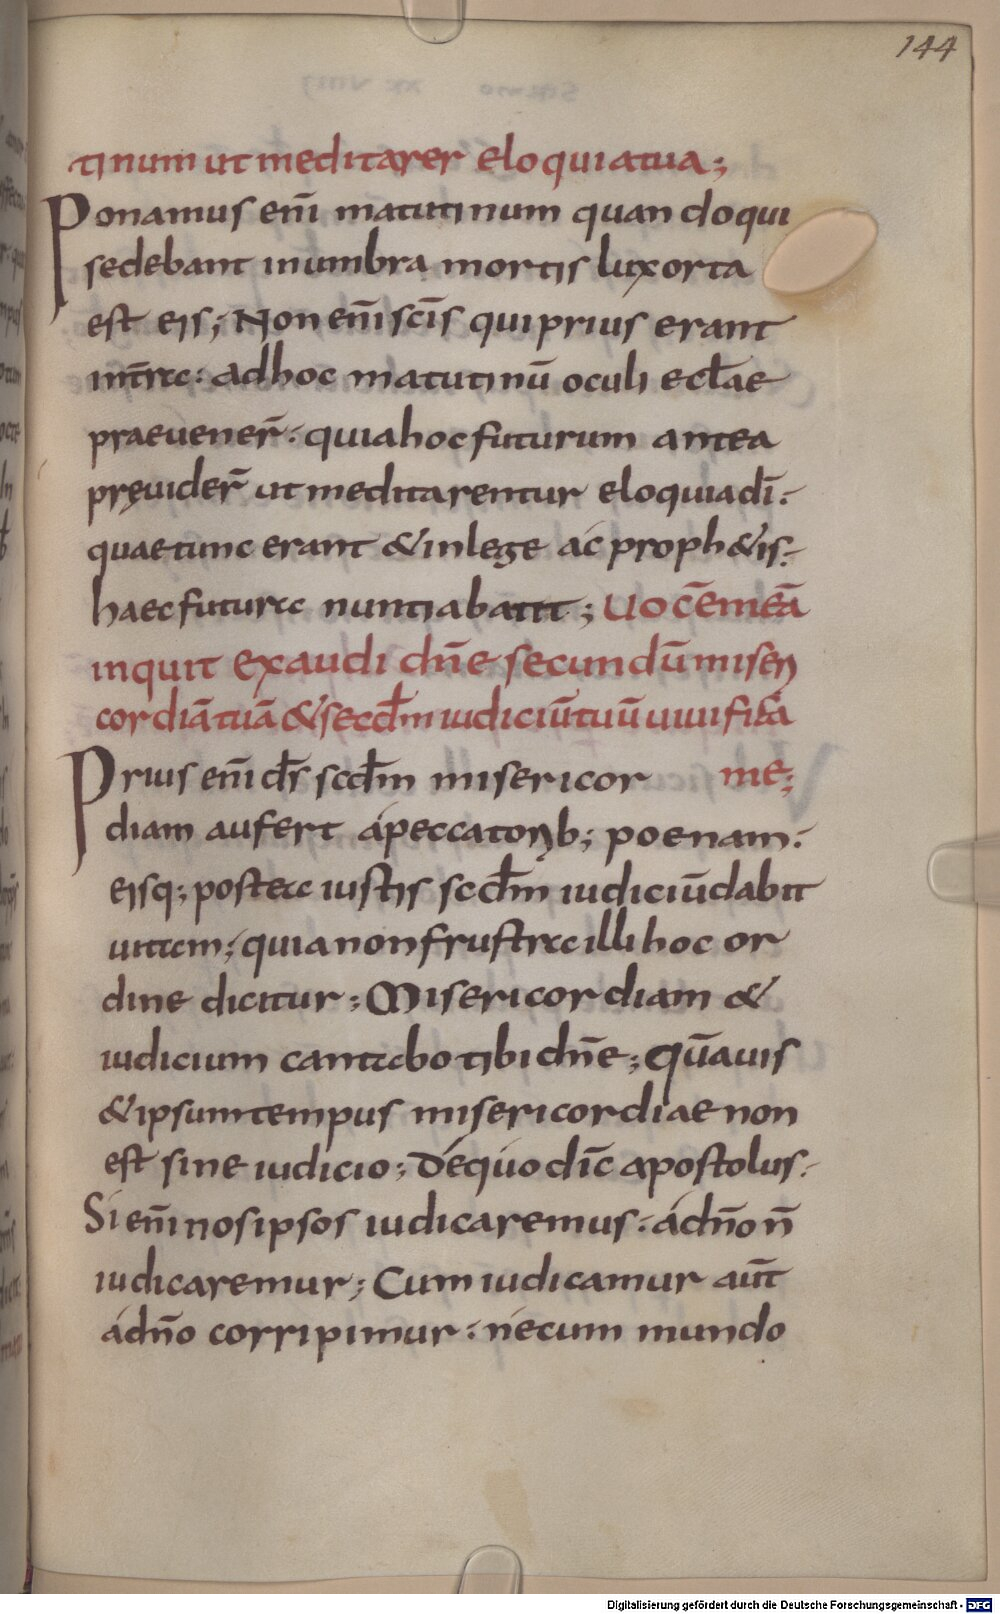 144
tinum ut meditarer eloquia tua;
Ponamus enī matutinum quando qui
sedebant in umbra mortis lux orta
est eis; Non enī in scīs qui prius erant
in trā: ad hoc matutinū oculi eclae
praevener̄: quia hoc futurum antea
pręuider̄ ut meditarentur eloquia dī:
quae tunc erant & in lege ac proph&is:
haec futura nuntiabant; Uocē meā
inquit exaudi dn̄e secundū miseri
cordiā tuā & secdm iudiciū tuū uiuifica
Prius enī ds̄ scdm misericor me;
diam aufert á peccatorib; poenam:
eisq; postea iustis scdm iudiciū dabit
uitam; quia non frustra illi hoc or
dine dicitur; Misericordiam &
iudicium cantabo tibi dn̄e; Quāuis
& ipsum tempus misericordiae non
est sine iudicio; Dé quo dīc apostolus:
Si enī nos ipsos iudicaremus: á dn̄o n̄
iudicaremur; Cum iudicamur aūt
á dn̄o corripimur: né cum mundo
Digitalisierung gefördert durch die Deutsche Forschungsgemeinschaft - DFG